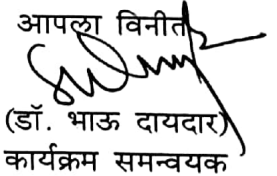 आपला विनीत
(डॉ. भाऊ दायदार)
कार्यक्रम समन्वयक